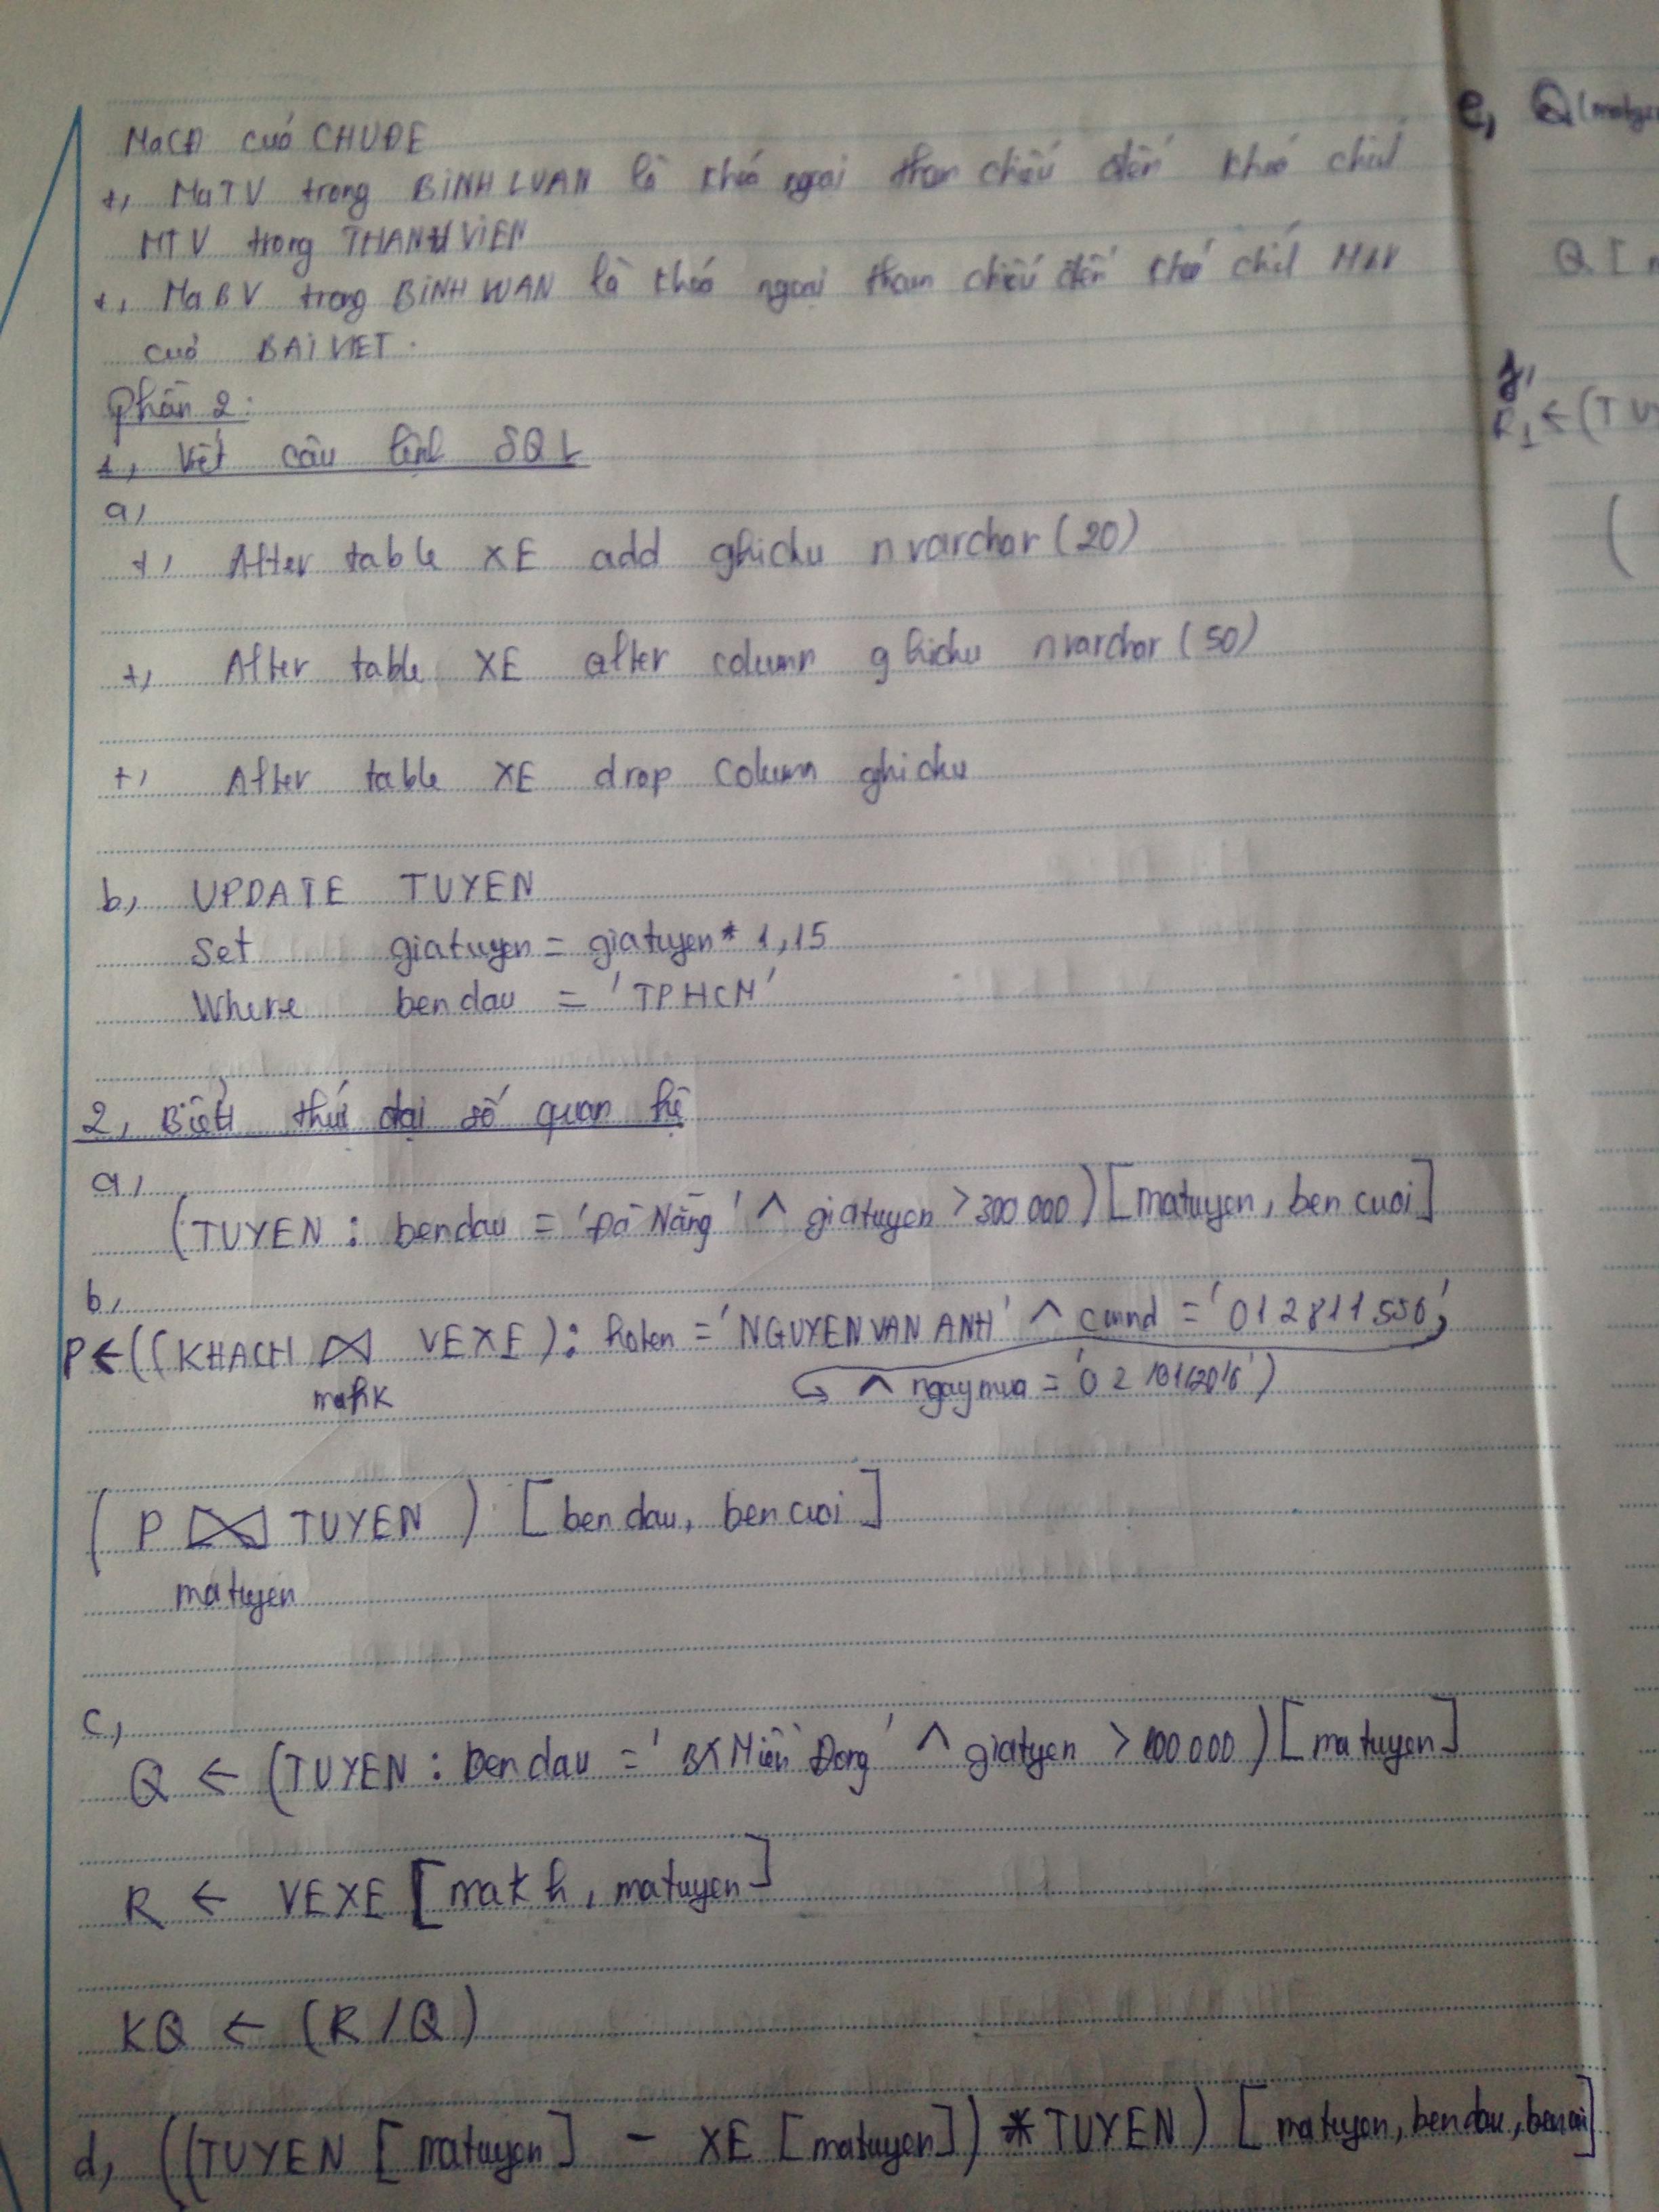 MaCĐ cuả CHUĐE
+, MaTV trong BINHLUAN là khoá ngoại tham chiếu đến khoá chính
MTV trong THANHVIEN
+, MaBV trong BINHLUAN là khoá ngoại tham chiếu đến khoá chính MBV
cuả BAIVIET.
Phần 2:
1, Viết câu lệnh SQL
a,
+, Alter table XE add ghichu nvarchar(20)
+, Alter table XE alter column ghichu nvarchar(50)
+, Alter table XE drop column ghichu
b, UPDATE TUYEN
Set giatuyen = giatuyen * 1,15
Where bendau = 'TPHCM'
2, Biểu thức đại số quan hệ
a,
(TUYEN : bendau = 'Đà Nẵng' ^ giatuyen > 300 000) [matuyen, ben cuoi]
b,
P ← ((KHACH ⋈ VEXE) : hoten = 'NGUYEN VAN ANH' ^ cmnd = '012811550'
mahk ^ ngaymua = '02/01/2016')
(P ⋈ TUYEN) [ben dau, ben cuoi]
matuyen
c,
Q ← (TUYEN : bendau = 'BX Miền Đong' ^ giatyen > 100 000) [matuyen]
R ← VEXE [makh, matuyen]
KQ ← (R / Q)
d, ((TUYEN [matuyen] - XE [matuyen]) * TUYEN) [matuyen, bendau, bencuoi]
e, Q
Q [
f,
R1 ← (TU
(